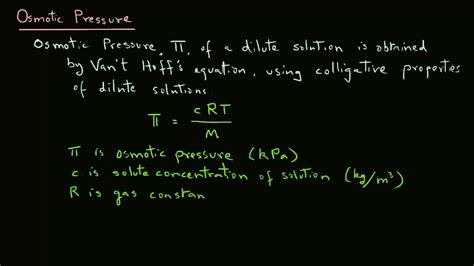 Osmotic Pressure
Osmotic Pressure, Π, of a dilute solution is obtained
by Van't Hoff's equation, using colligative properties
of dilute solutions.
Π = cRT / M
Π is osmotic pressure (kPa)
c is solute concentration of solution (kg/m³)
R is gas constan